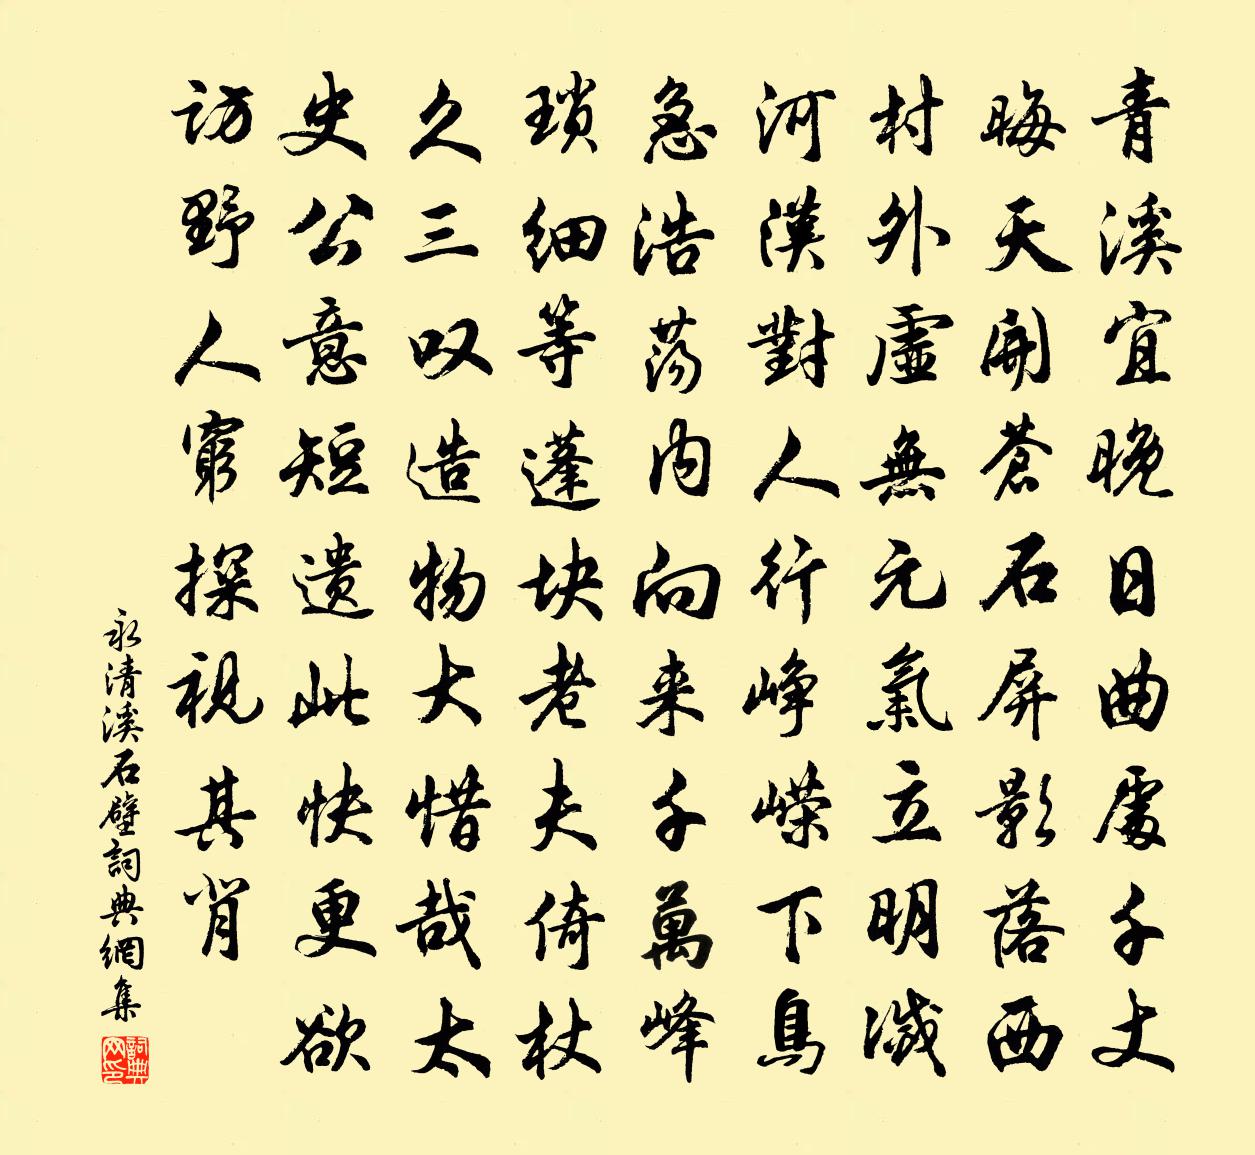 青溪宜晚日曲處千丈
晦天開蒼石屏影落西
村外虛無元氣立明滅
河漢對人行峥嵘下鳥
急浩蕩内向来千萬峰
瑣細等蓬块老夫倚杖
久三叹造物大惜哉太
史公意短遗此快更欲
访野人窮探視其背
永清溪石壁詞典網集
詞典网印